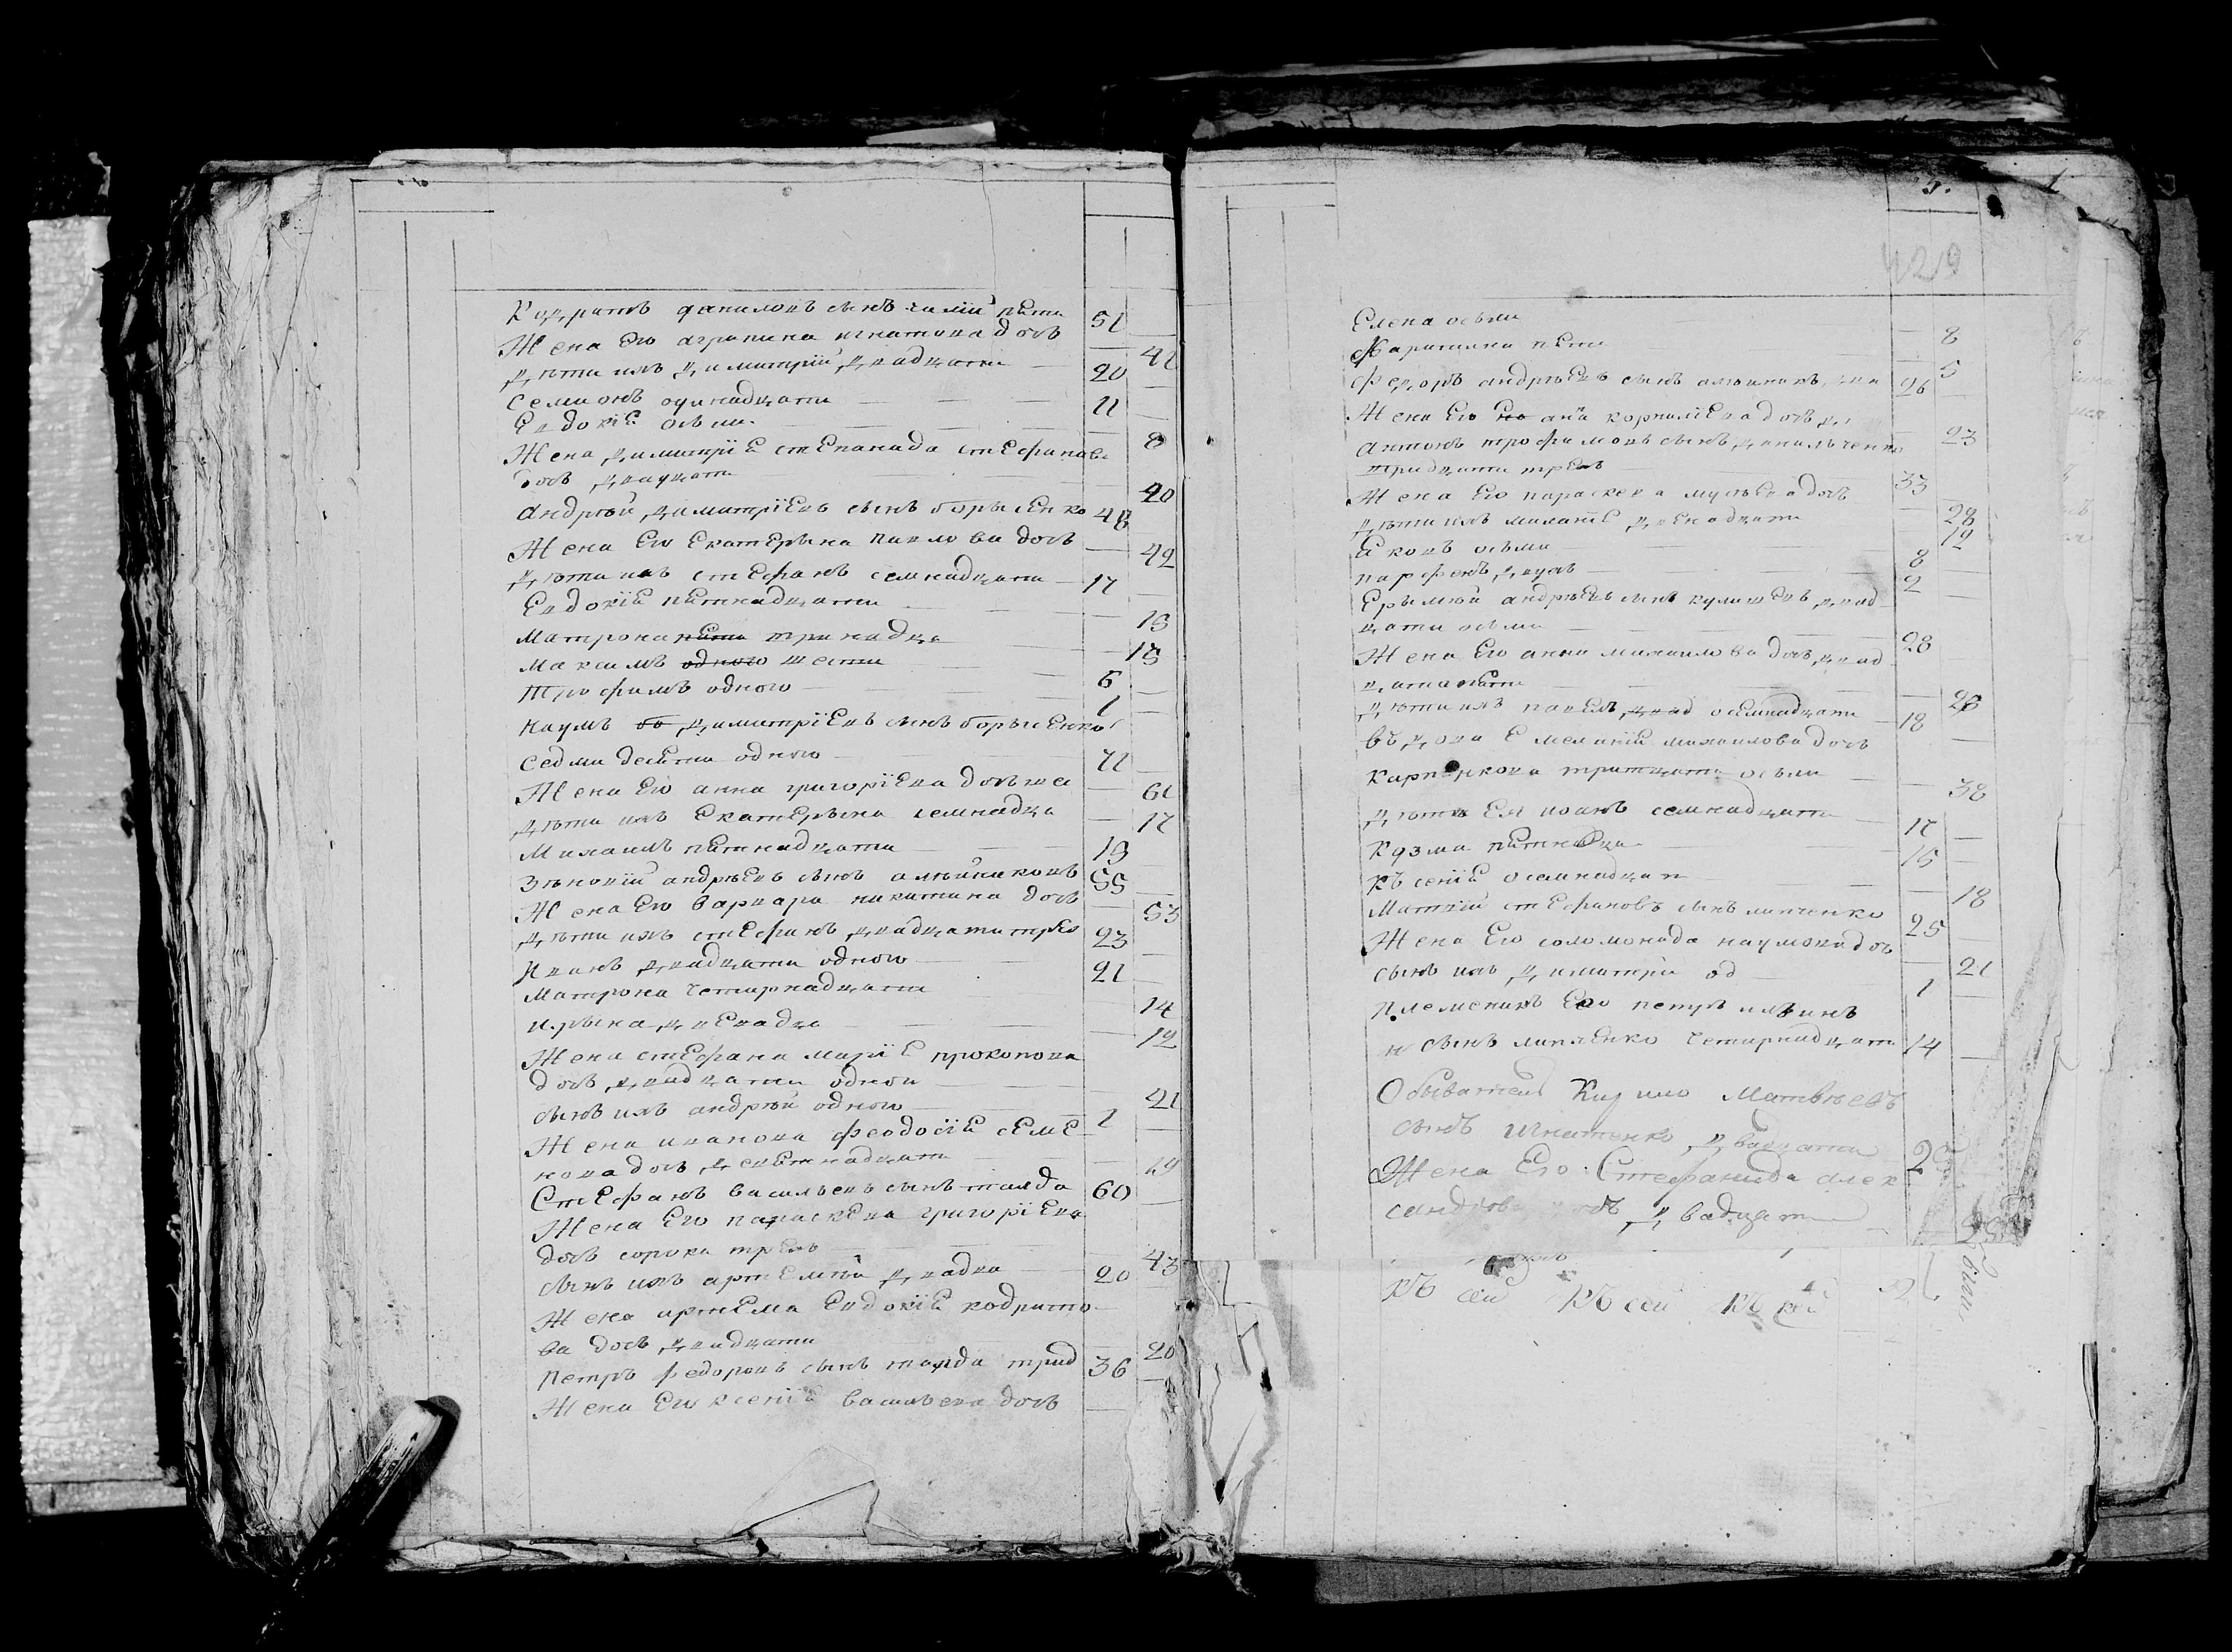 Кодратъ даниловъ сынъ пяти 51
Жена его агрипина игнатова дочь 41
Дѣти ихъ димитрій двадцати 20
Семионъ одинадцати 11
Евдокіѣ осьми 8
Жена димитріѣ степанида стефанова
дочь двадцати 20
Андрѣй димитріевъ сынъ борысенко 48
Жена его екатерына павлова дочь 42
Дѣти ихъ стефанъ семнадцати 17
Евдокіѣ пятнадцати 15
Матрона пяти тринадца 13
Максимъ одного шести 6
Трофимъ одного 1
Наумъ бо димитріевъ сынъ борысенко
седмидесяти одного 71
Жена его анна григоріева дочь ше 61
Дѣти ихъ екатерына семнадца 17
Михаилъ пятнадцати 15
Зѣновій андрѣевъ сынъ алѣйниковъ 55
Жена его варвара никитина дочь 53
Дѣти ихъ стефанъ двадцати трех 23
Иванъ двадцати одного 21
Матрона четырнадцати 14
ирына двенадца 12
Жена стефана маріѣ прокопова
дочь двадцати одной 21
сынъ ихъ андрѣй одного 1
Жена иванова феодосіѣ семе
нова дочь девятнадцати 19
Стефанъ васильевъ сынъ 60
Жена его параскева григоріева
дочь сорока трех 43
сынъ ихъ артемѣй двадца 20
Жена артема евдокіѣ кодрато
ва дочь двадцати 20
Петръ федоровъ сынъ трид 36
Жена его ксеніѣ васильева дочь
429
Елена осьми 8
Марина пяти 5
Федоръ андрѣевъ сынъ алѣйникъ 26
Жена его ана корниліева дочь 23
Антонъ трофимовъ сынъ данильченко
тридцати трех 33
Жена его параскева дочь 28
Дѣти ихъ двенадцати 12
ѣковъ осьми 8
парфенъ двухъ 2
Ерымѣй андрѣевъ сынъ кулишевъ двад
цати осьми 28
Жена его анна михаилова дочь двад
цати пяти 25
Дѣти ихъ павелъ двад осемнадцати 18
вдова михаилова дочь
карпенкова тритцати осьми 38
Дѣти ея иоанъ семнадцати 17
Кузма пятнадца 15
Къ сеніѣ осемнадцати 18
Матвій стефановъ сынъ липченко 25
Жена его соломонида наумова дочь 21
сынъ ихъ димитри од 1
Племеникъ его петръ ильинъ
сынъ липченко четырнадцати 14
Обыватель Матвѣевъ
сынъ Игнатенко двадцати
Жена Его Стефанида алек
сандрова двадцат
къ сей къ сей къ сей